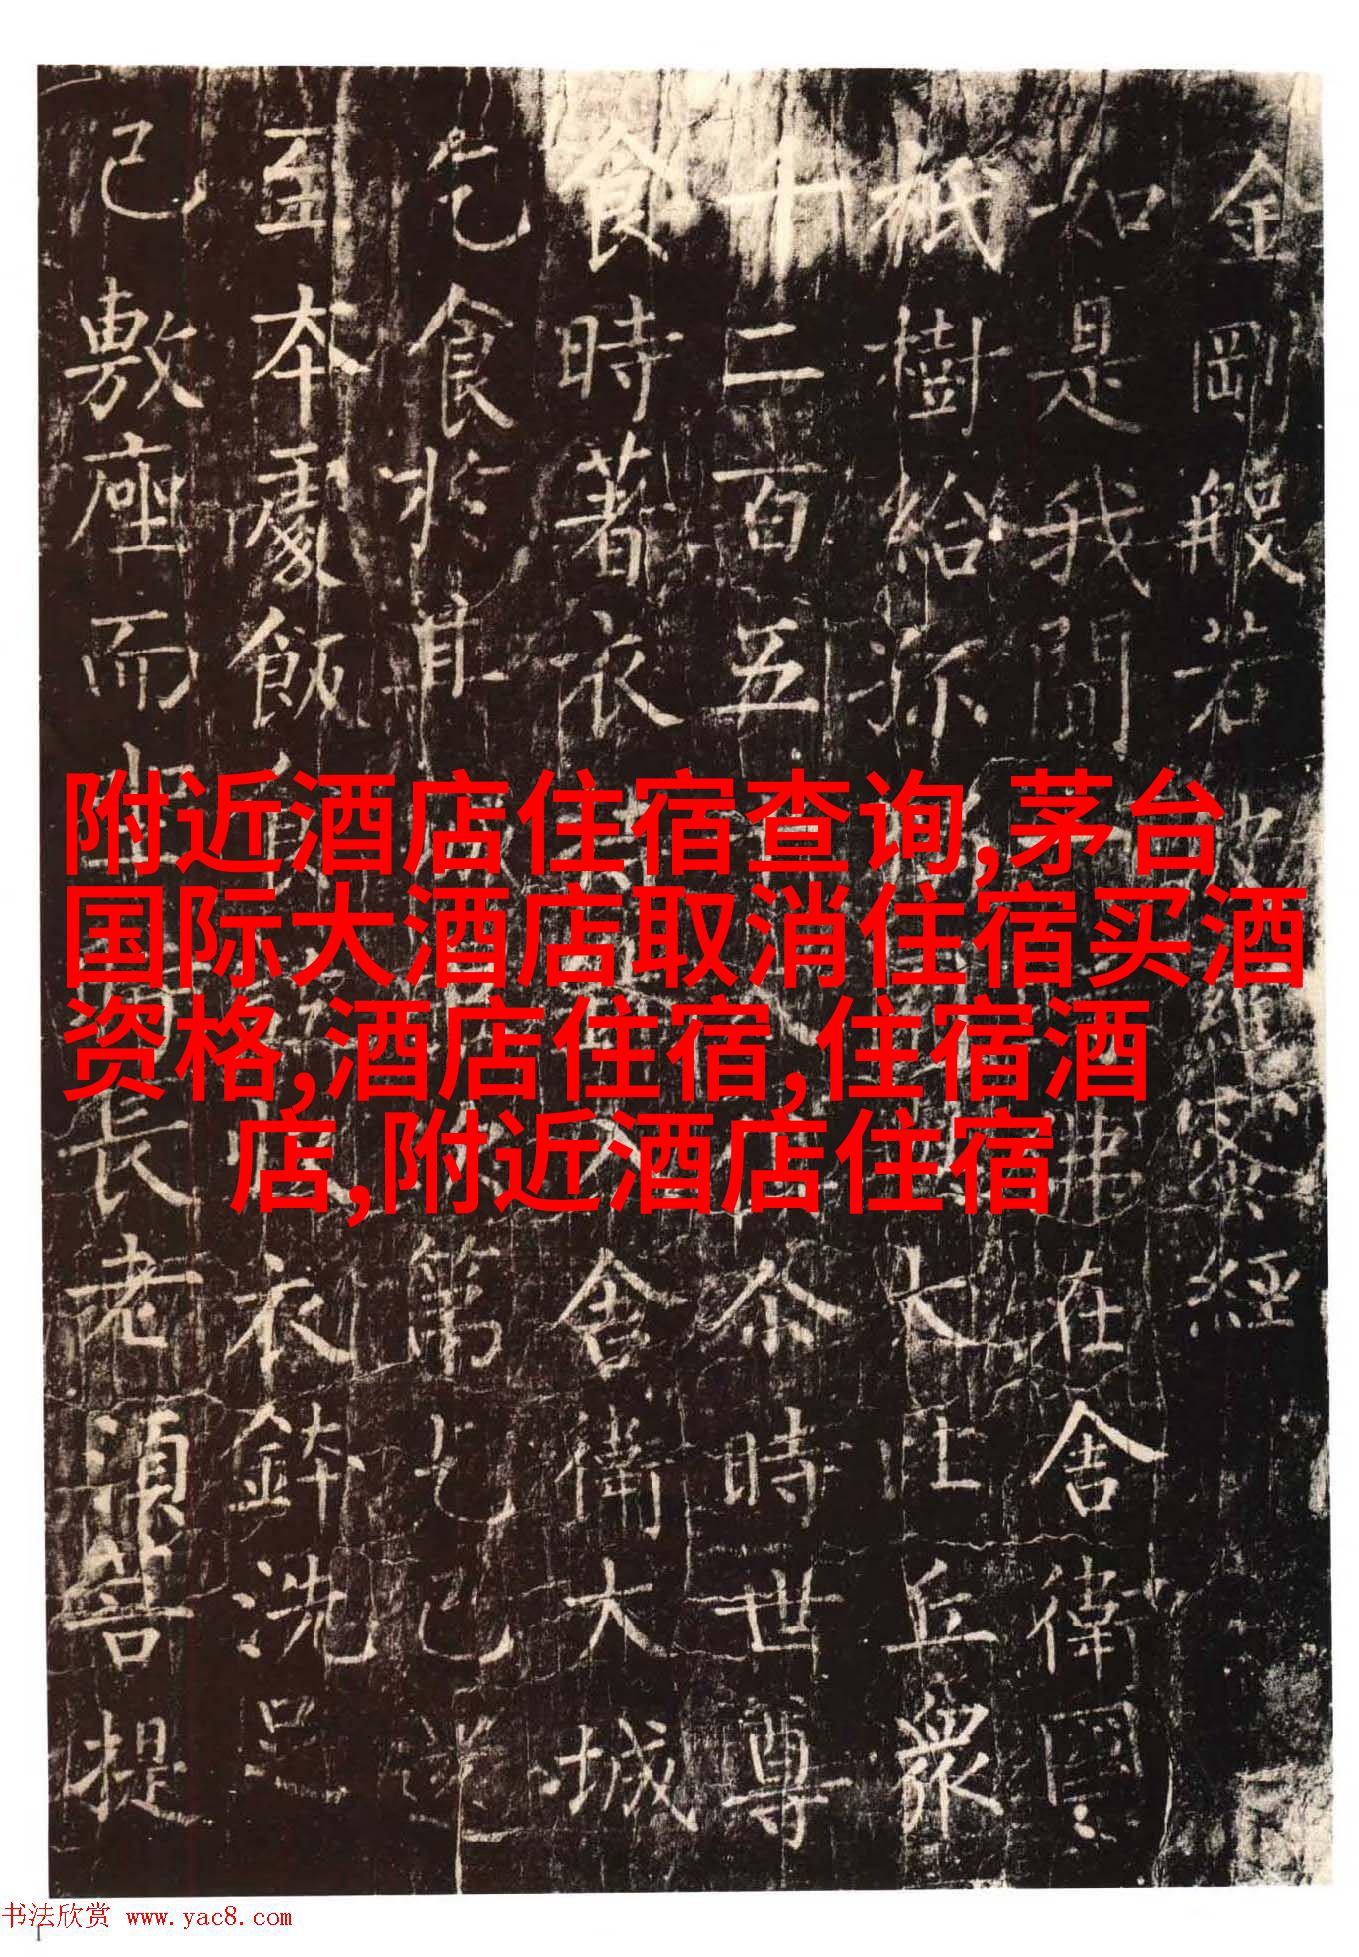 金剛般若波羅蜜經
如是我聞佛在舍衛國
祇樹給孤大比丘衆
千二百五尒時世尊
食時著衣入舍衛大城
乞食於其第乞已還
至本處飯食衣鉢洗足
已敷座而坐時長老須菩提
附近酒店住宿查询,茅台
国际大酒店取消住宿买酒
资格,酒店住宿,住宿酒
店,附近酒店住宿
书法欣赏 www.yac8.com